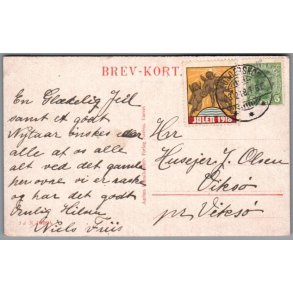 BREV-KORT.
JULEN 1918
5
En Glædelig Jul
samt et godt
Nytaar ønskes
alle at os alle
alt ved det gamle
her ovre vi er raske
og har det godt
Venlig Hilsen
Niels Friis
Hr
Husejer J. Olsen
Viksø
pr Viksø